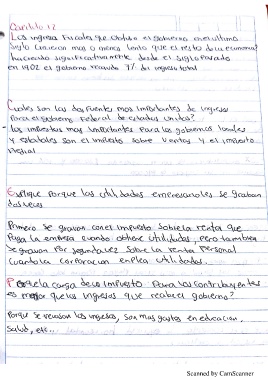 Capitulo 12
Los ingresos Fiscales que obtuvo el gobierno en el ultimo
Siglo Crecieron mas o menos lento que el resto de la economia?
ha crecido significativamente desde el siglo Pasado
en 1902 el gobierno recaudo 7% del ingreso total
Cuales son las dos Fuentes mas importantes de ingreso
Para el gobierno Federal de estados unidos?
los impuestos mas importantes Para los gobiernos locales
y estatales son el impuesto sobre Ventas y el impuesto
Explique Porque las utilidades empresariales se graban
dos veces
Primero se gravan con el impuesto Sobre la renta que
Paga la empresa cuando obtiene utilidades, pero tambien
Se gravan Por segunda vez Sobre la renta Personal
Cuando la corporacion utilidades.
Porque la carga de un impuesto Para los contribuyentes
es mayor que los ingresos que recibe el gobierno?
Porque Se los ingresos, Son mas gastos en educacion,
Salud, etc..
Scanned by CamScanner